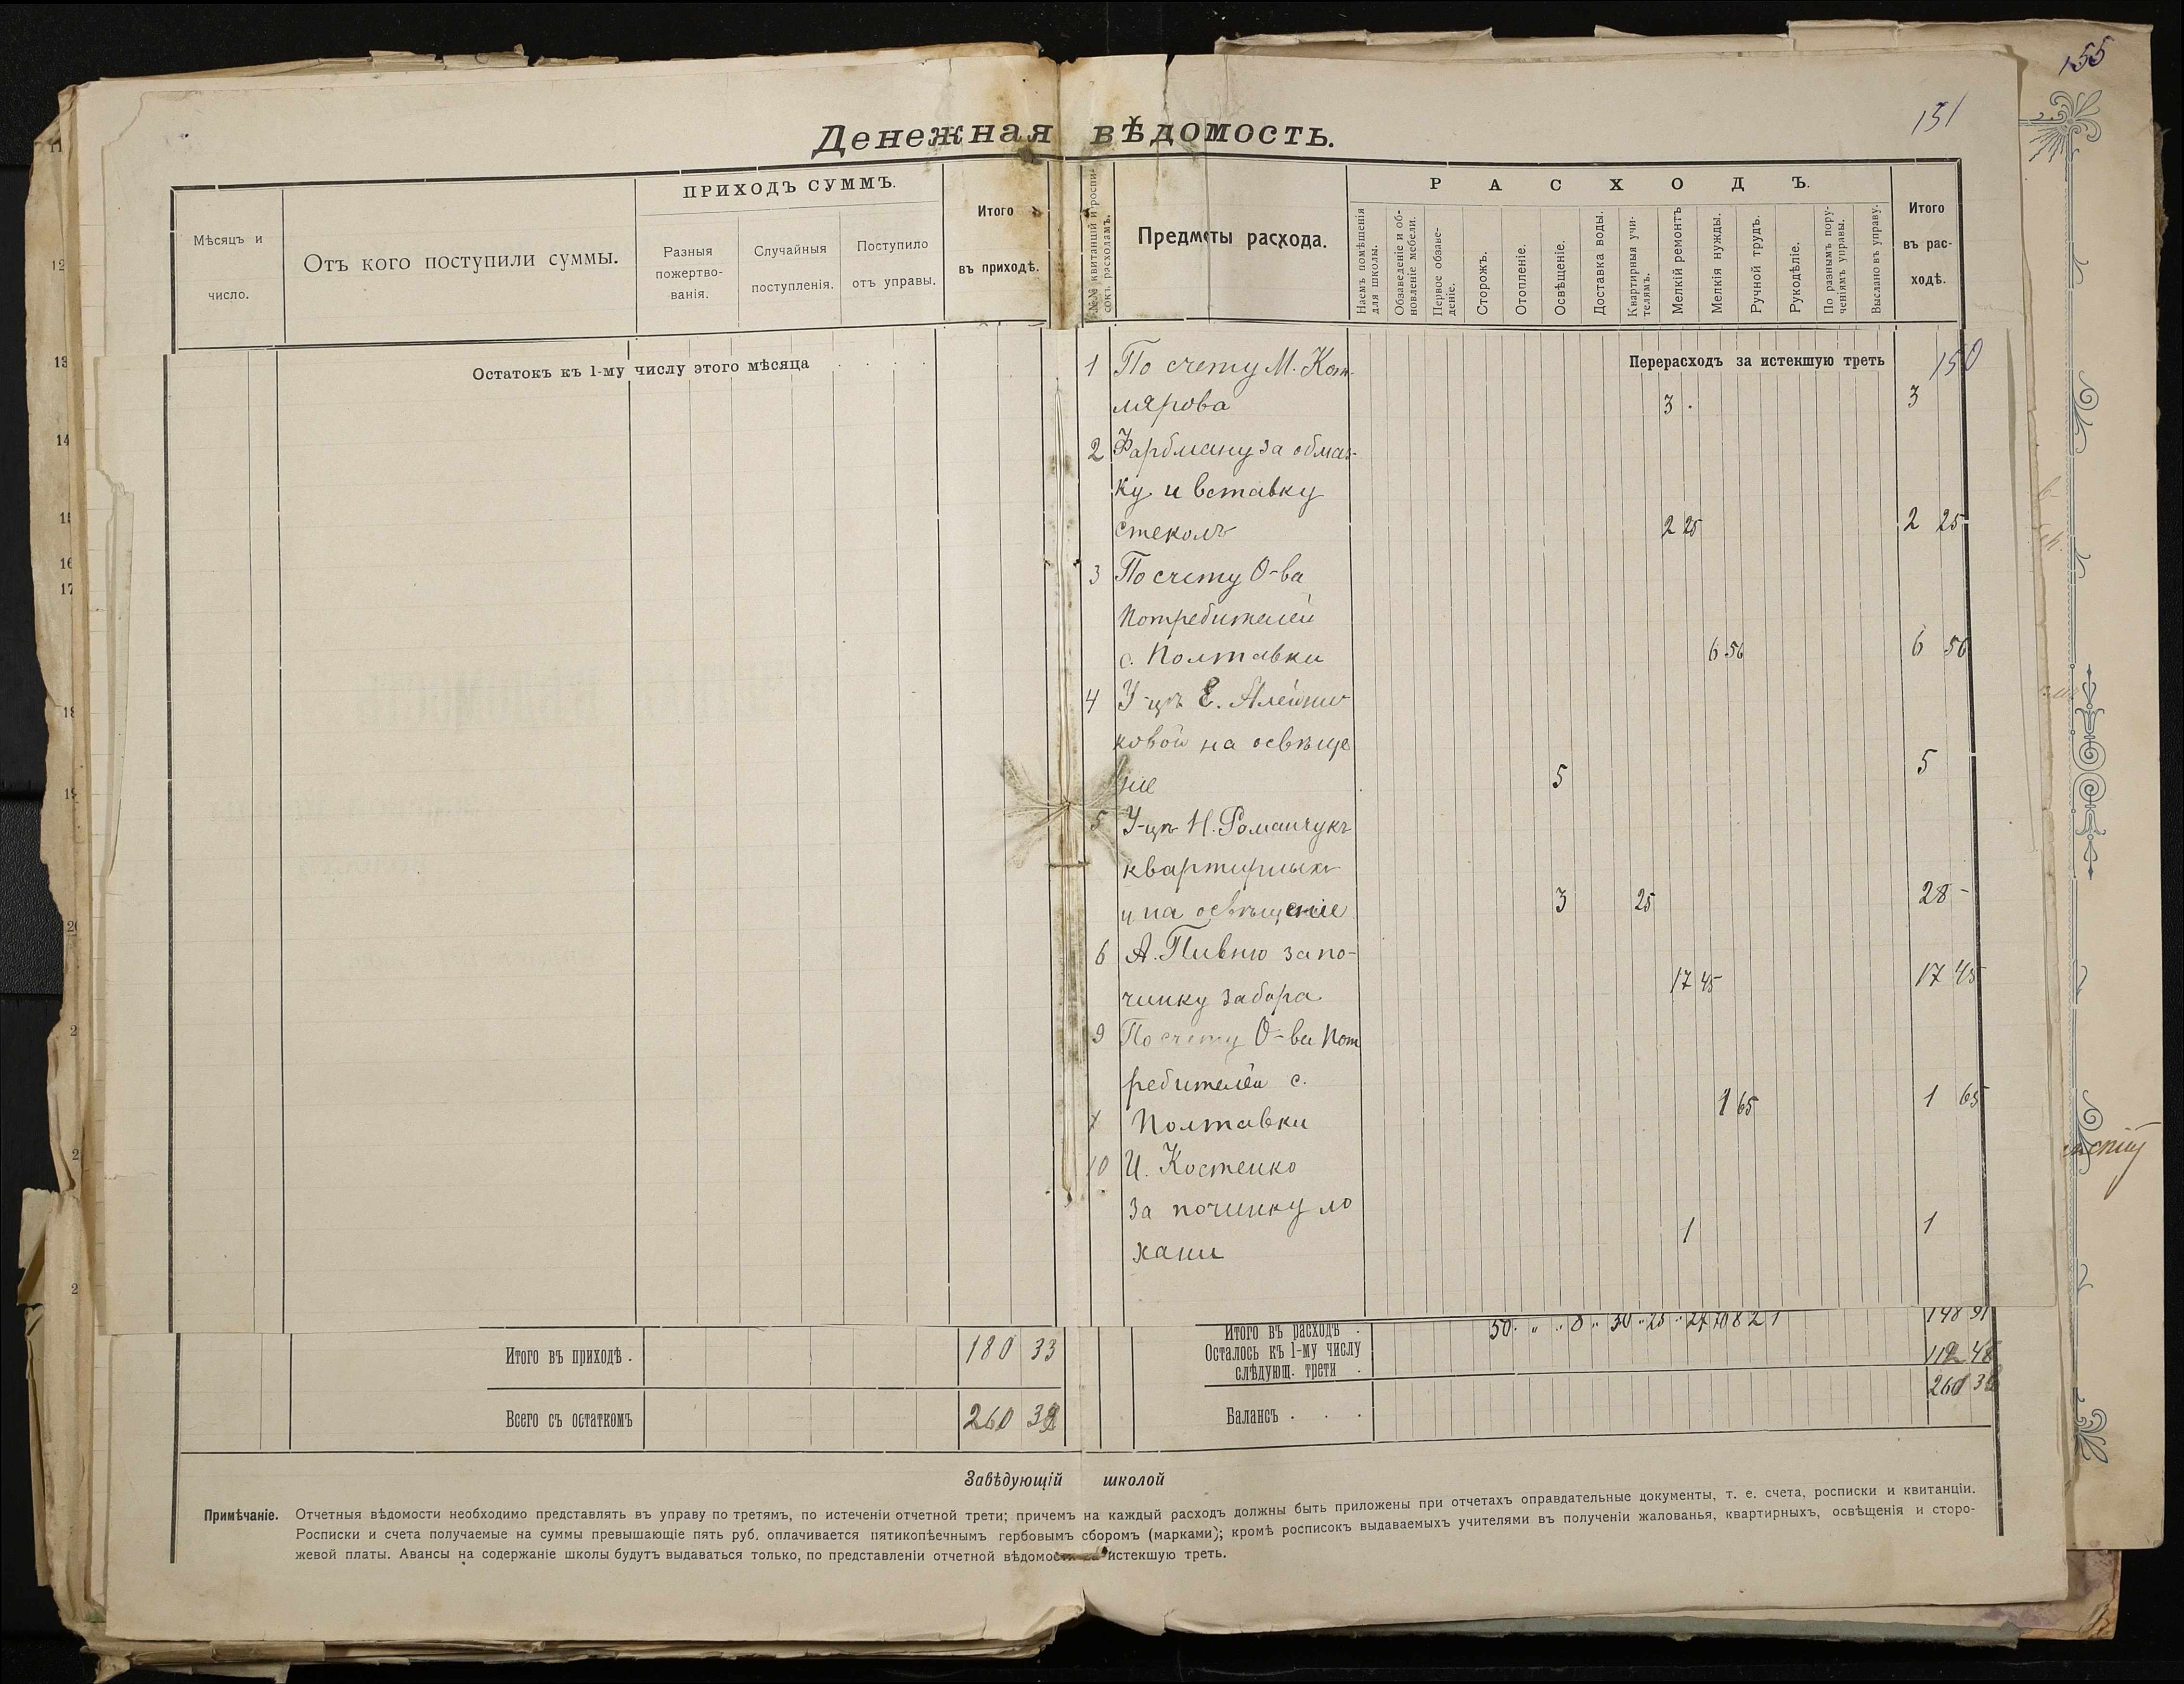 155
151
Денежная вѣдомость.
Мѣсяцъ и
число.
Отъ кого поступили суммы.
ПРИХОДЪ СУММЪ.
Разныя
пожертво-
ванія.
Случайныя
поступленія.
Поступило
отъ управы.
Итого
въ приходѣ.
№№ квитанцій и роспи-
сокъ расходамъ.
Предметы расхода.
РАСХОДЪ.
Наемъ помѣщенія
для школы.
Обзаведеніе и об-
новленіе мебели.
Первое обзаве-
деніе.
Сторожъ.
Отопленіе.
Освѣщеніе.
Доставка воды.
Квартирныя учи-
телямъ.
Мелкій ремонтъ
Мелкія нужды.
Ручной трудъ.
Рукодѣліе.
По разнымъ пору-
ченіямъ управы.
Выслано въ управу.
Итого
въ рас-
ходѣ.
Остатокъ къ 1-му числу этого мѣсяца
Перерасходъ за истекшую треть
150
1 По счету М. Кот-
лярова 3 . 3
2 Фарбману за обмаз-
ку и вставку
стеколъ 2 25 2 25
3 По счету О-ва
потребителей
с. Полтавки 6 56 6 56
4 У-цѣ Е. Алейни
ковой на освѣще
ніе 5 5
5 У-цѣ Н. Романчукъ
квартирныхъ
и на освѣщеніе 3 25 28 -
6 А. Пивню за по-
чинку забора 17 45 17 45
9 По счету О-ва пот
ребителей с.
Полтавки 1 65 1 65
10 И. Костенко
за починку ло
хани 1 1
Итого въ приходѣ . 180 33
Всего съ остаткомъ 260 39
Итого въ расходѣ . 50 8 30 25 27 70 8 21 148 91
Осталось къ 1-му числу
слѣдующ. трети .
Балансъ . . .
Завѣдующій школой
Примѣчаніе. Отчетныя вѣдомости необходимо представлять въ управу по третямъ, по истеченіи отчетной трети; причемъ на каждый расходъ должны быть приложены при отчетахъ оправдательные документы, т. е. счета, росписки и квитанціи.
Росписки и счета получаемые на суммы превышающіе пять руб. оплачивается пятикопѣечнымъ гербовымъ сборомъ (марками); кромѣ росписокъ выдаваемыхъ учителями въ полученіи жалованья, квартирныхъ, освѣщенія и сторо-
жевой платы. Авансы на содержаніе школы будутъ выдаваться только, по представленіи отчетной вѣдомости истекшую треть.